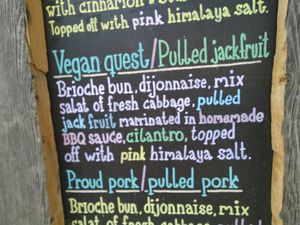 with cinnamon
Topped off with pink himalaya salt.
Vegan quest/Pulled jackfruit
Brioche bun, dijonnaise, mix
salat of fresh cabbage, pulled
jack fruit marinated in homemade
BBQ sauce, cilantro, topped
off with pink himalaya salt.
Proud pork/pulled pork
Brioche bun, dijonnaise, mix
salat of fresh cabbage, pulled